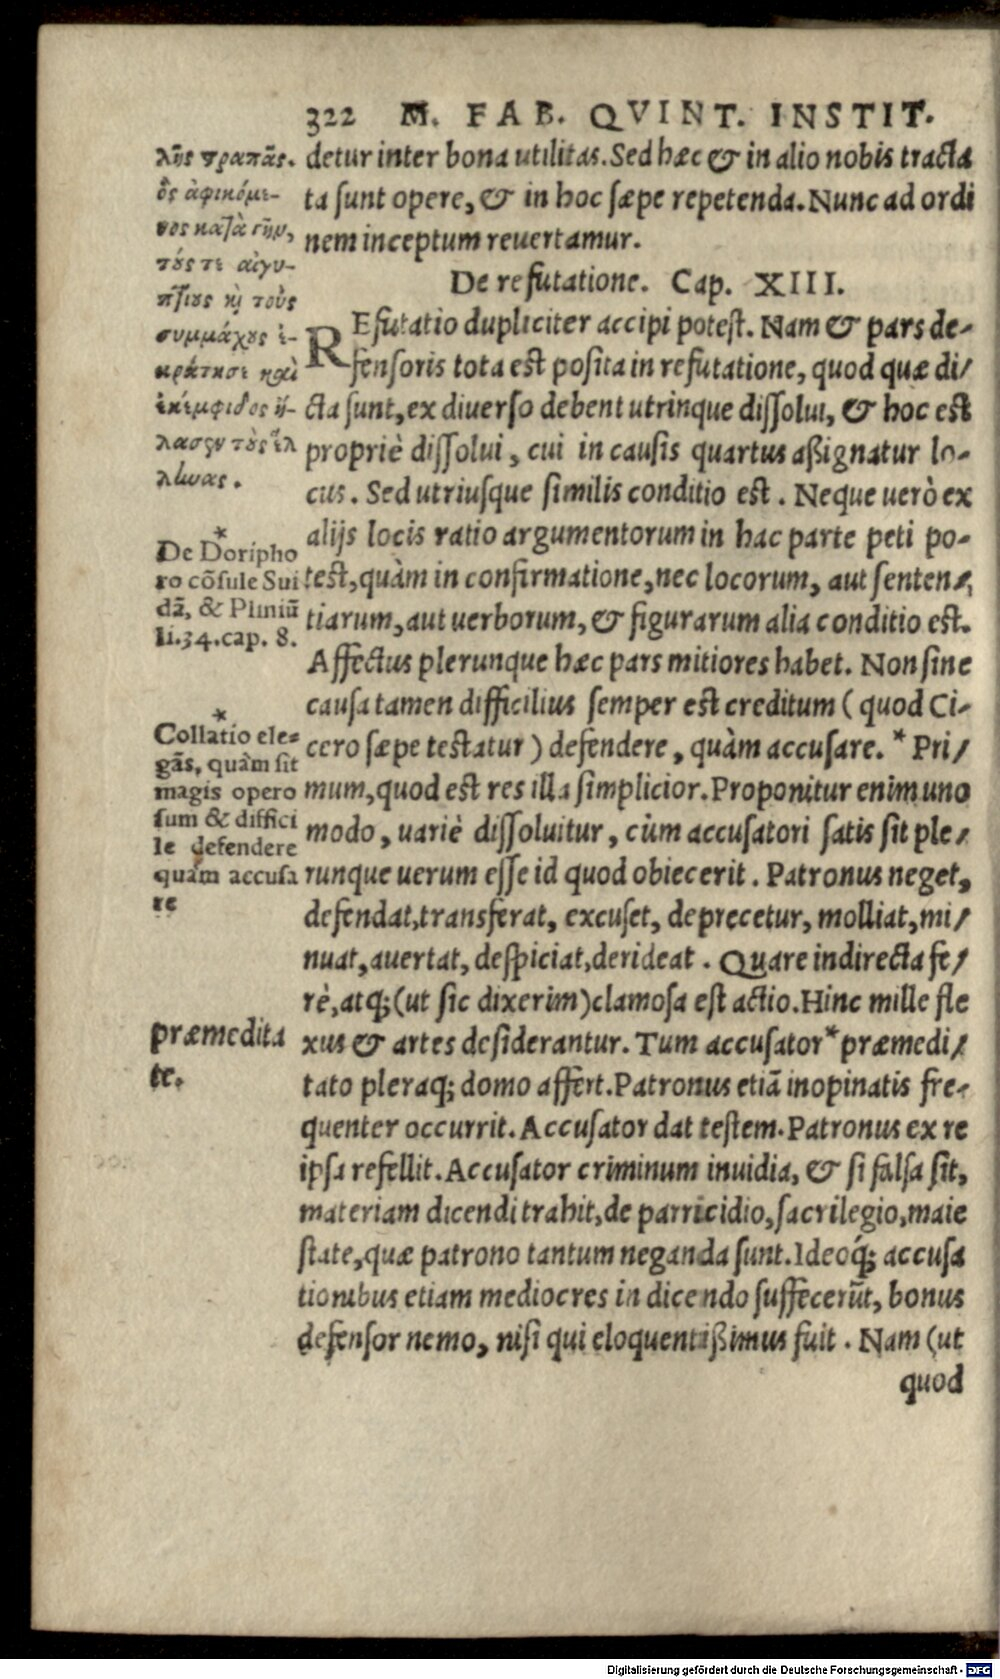 322 M. FAB. QVINT. INSTIT.
detur inter bona utilitas. Sed hæc & in alio nobis tracta
ta sunt opere, & in hoc sæpe repetenda. Nunc ad ordi
nem inceptum reuertamur.
De refutatione. Cap. XIII.
REfutatio dupliciter accipi potest. Nam & pars de-
fensoris tota est posita in refutatione, quod quæ di/
cta sunt, ex diuerso debent utrinque dissolui, & hoc est
propriè dissolui, cui in causis quartus aßignatur lo-
cus. Sed utriusque similis conditio est. Neque uerò ex
alijs locis ratio argumentorum in hac parte peti po-
test, quàm in confirmatione, nec locorum, aut senten/
tiarum, aut uerborum, & figurarum alia conditio est.
Affectus plerunque hæc pars mitiores habet. Non sine
causa tamen difficilius semper est creditum (quod Ci-
cero sæpe testatur) defendere, quàm accusare. * Pri/
mum, quod est res illa simplicior. Proponitur enim uno
modo, uariè dissoluitur, cùm accusatori satis sit ple/
runque uerum esse id quod obiecerit. Patronus neget,
defendat, transferat, excuset, deprecetur, molliat, mi/
nuat, auertat, despiciat, derideat. Quare indirecta fe/
rè, atq; (ut sic dixerim) clamosa est actio. Hinc mille fle
xus & artes desiderantur. Tum accusator * præmedi/
tato pleraq; domo affert. Patronus etiã inopinatis fre-
quenter occurrit. Accusator dat testem. Patronus ex re
ipsa refellit. Accusator criminum inuidia, & si falsa sit,
materiam dicendi trahit, de parricidio, sacrilegio, maie
state, quæ patrono tantum neganda sunt. Ideoq́; accusa
tionibus etiam mediocres in dicendo suffecerũt, bonus
defensor nemo, nisi qui eloquentißimus fuit. Nam (ut
quod
λῆς τραπᾶς.
ὃς ἀφικόμε-
νος κατὰ γῆν,
τούς τε αἰγυ-
πτίους κὶ τοὺς
συμμάχους ἐ-
κράτησε καὶ
ἐκέμφιδος ἤ-
λασεν τοὺς ἕλ
λωας.
*
De Doripho
ro cõsule Sui
dã, & Pliniũ
li.34.cap. 8.
*
Collatio ele=
gãs, quàm sit
magis opero
sum & diffici
le defendere
quàm accusa
re
præmedita
te.
Digitalisierung gefördert durch die Deutsche Forschungsgemeinschaft - DFG